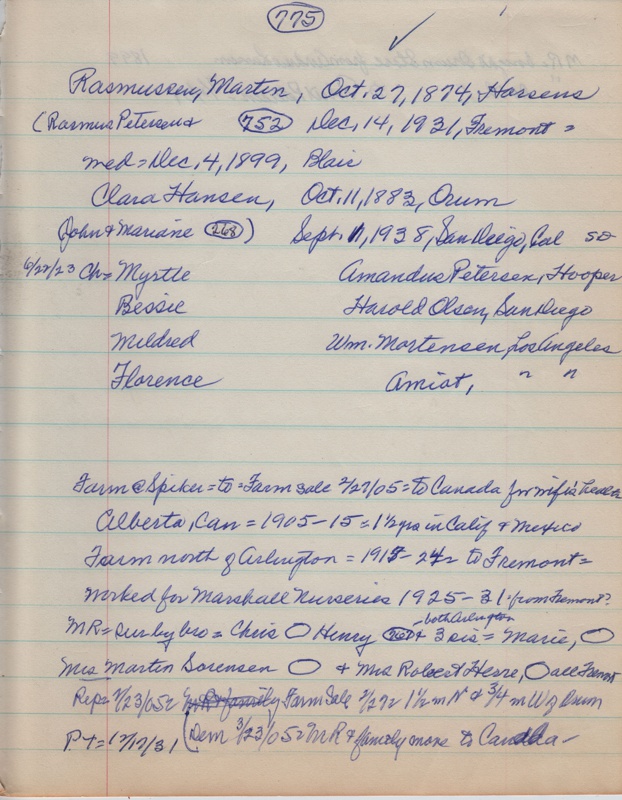 775
Rasmussen, Martin, Oct. 27, 1874, Horsens
(Rasmus Petersen & 752 Dec, 14, 1931, Fremont =
med = Dec, 4, 1899, Blair
Clara Hansen, Oct. 11, 1883, Orum
John & Mariane 268) Sept. 11, 1938, San Diego, Cal SD
6/27/23 Ch = Myrtle Amandus Petersen, Hooper
Bessie Harold Olsen, San Diego
Mildred Wm. Mortensen, Los Angeles
Florence Amiot, " "
Farm @ Spiker = to = Farm sale 2/27/05 = to Canada for wife's health
Alberta, Can = 1905-15 = 1½ yrs in Calif & Mexico
Farm north of Arlington = 1915-24 = to Fremont =
worked for Marshall Nurseries 1925-31. from Fremont?
both Arlington
MR = surv by bro = Chris Henry 267 & 3 sis = Marie,
Mrs Martin Sorensen & Mrs Robert Herre, all Fremont
Rep = 2/23/05 = Farm Sale 2/27 = 1½ m N & ¾ m W of Orum
PT = 12/17/31 (Dem 3/23/05 = MR & family move to Canada -